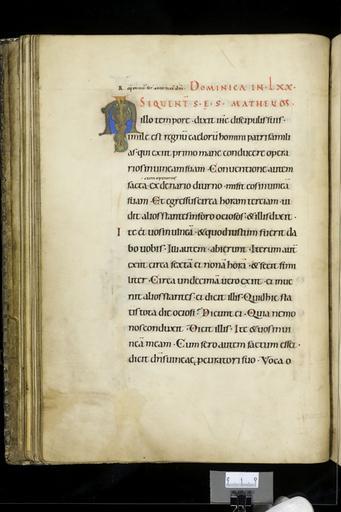 DOMINICA IN·LXX·
SEQUENT S·E·S·MATHEVM·
IN illo tempore· dixit iħc discipulis suis·
imile est regnū caelorū homini patri famili
as· qui exiit primo mane conducere opera
rios in uineam suam· Conuentione autem
facta ex denario diurno· misit eos in uineā
suam· Et egressus circa horam terciam· ui
dit alios stantes in foro ociosos· & illis dixit·
Ite et uos in uineā· & quod iustum fuerit da
bo uobis· Illi autem abierunt· Iterum autē
exiit circa sextā et nonā horā· & fecit simi
liter· Circa undecimā uero exiit· et inue
nit alios stantes· et dicit illis· Quid hic sta
tis tota die ociosi? Dicunt ei· Quia nemo
nos conduxit· Dicit illis· Ite & uos in ui
neā meam· Cum sero autem factum esset·
dicit dn̄s uineae procuratori suo· Voca o